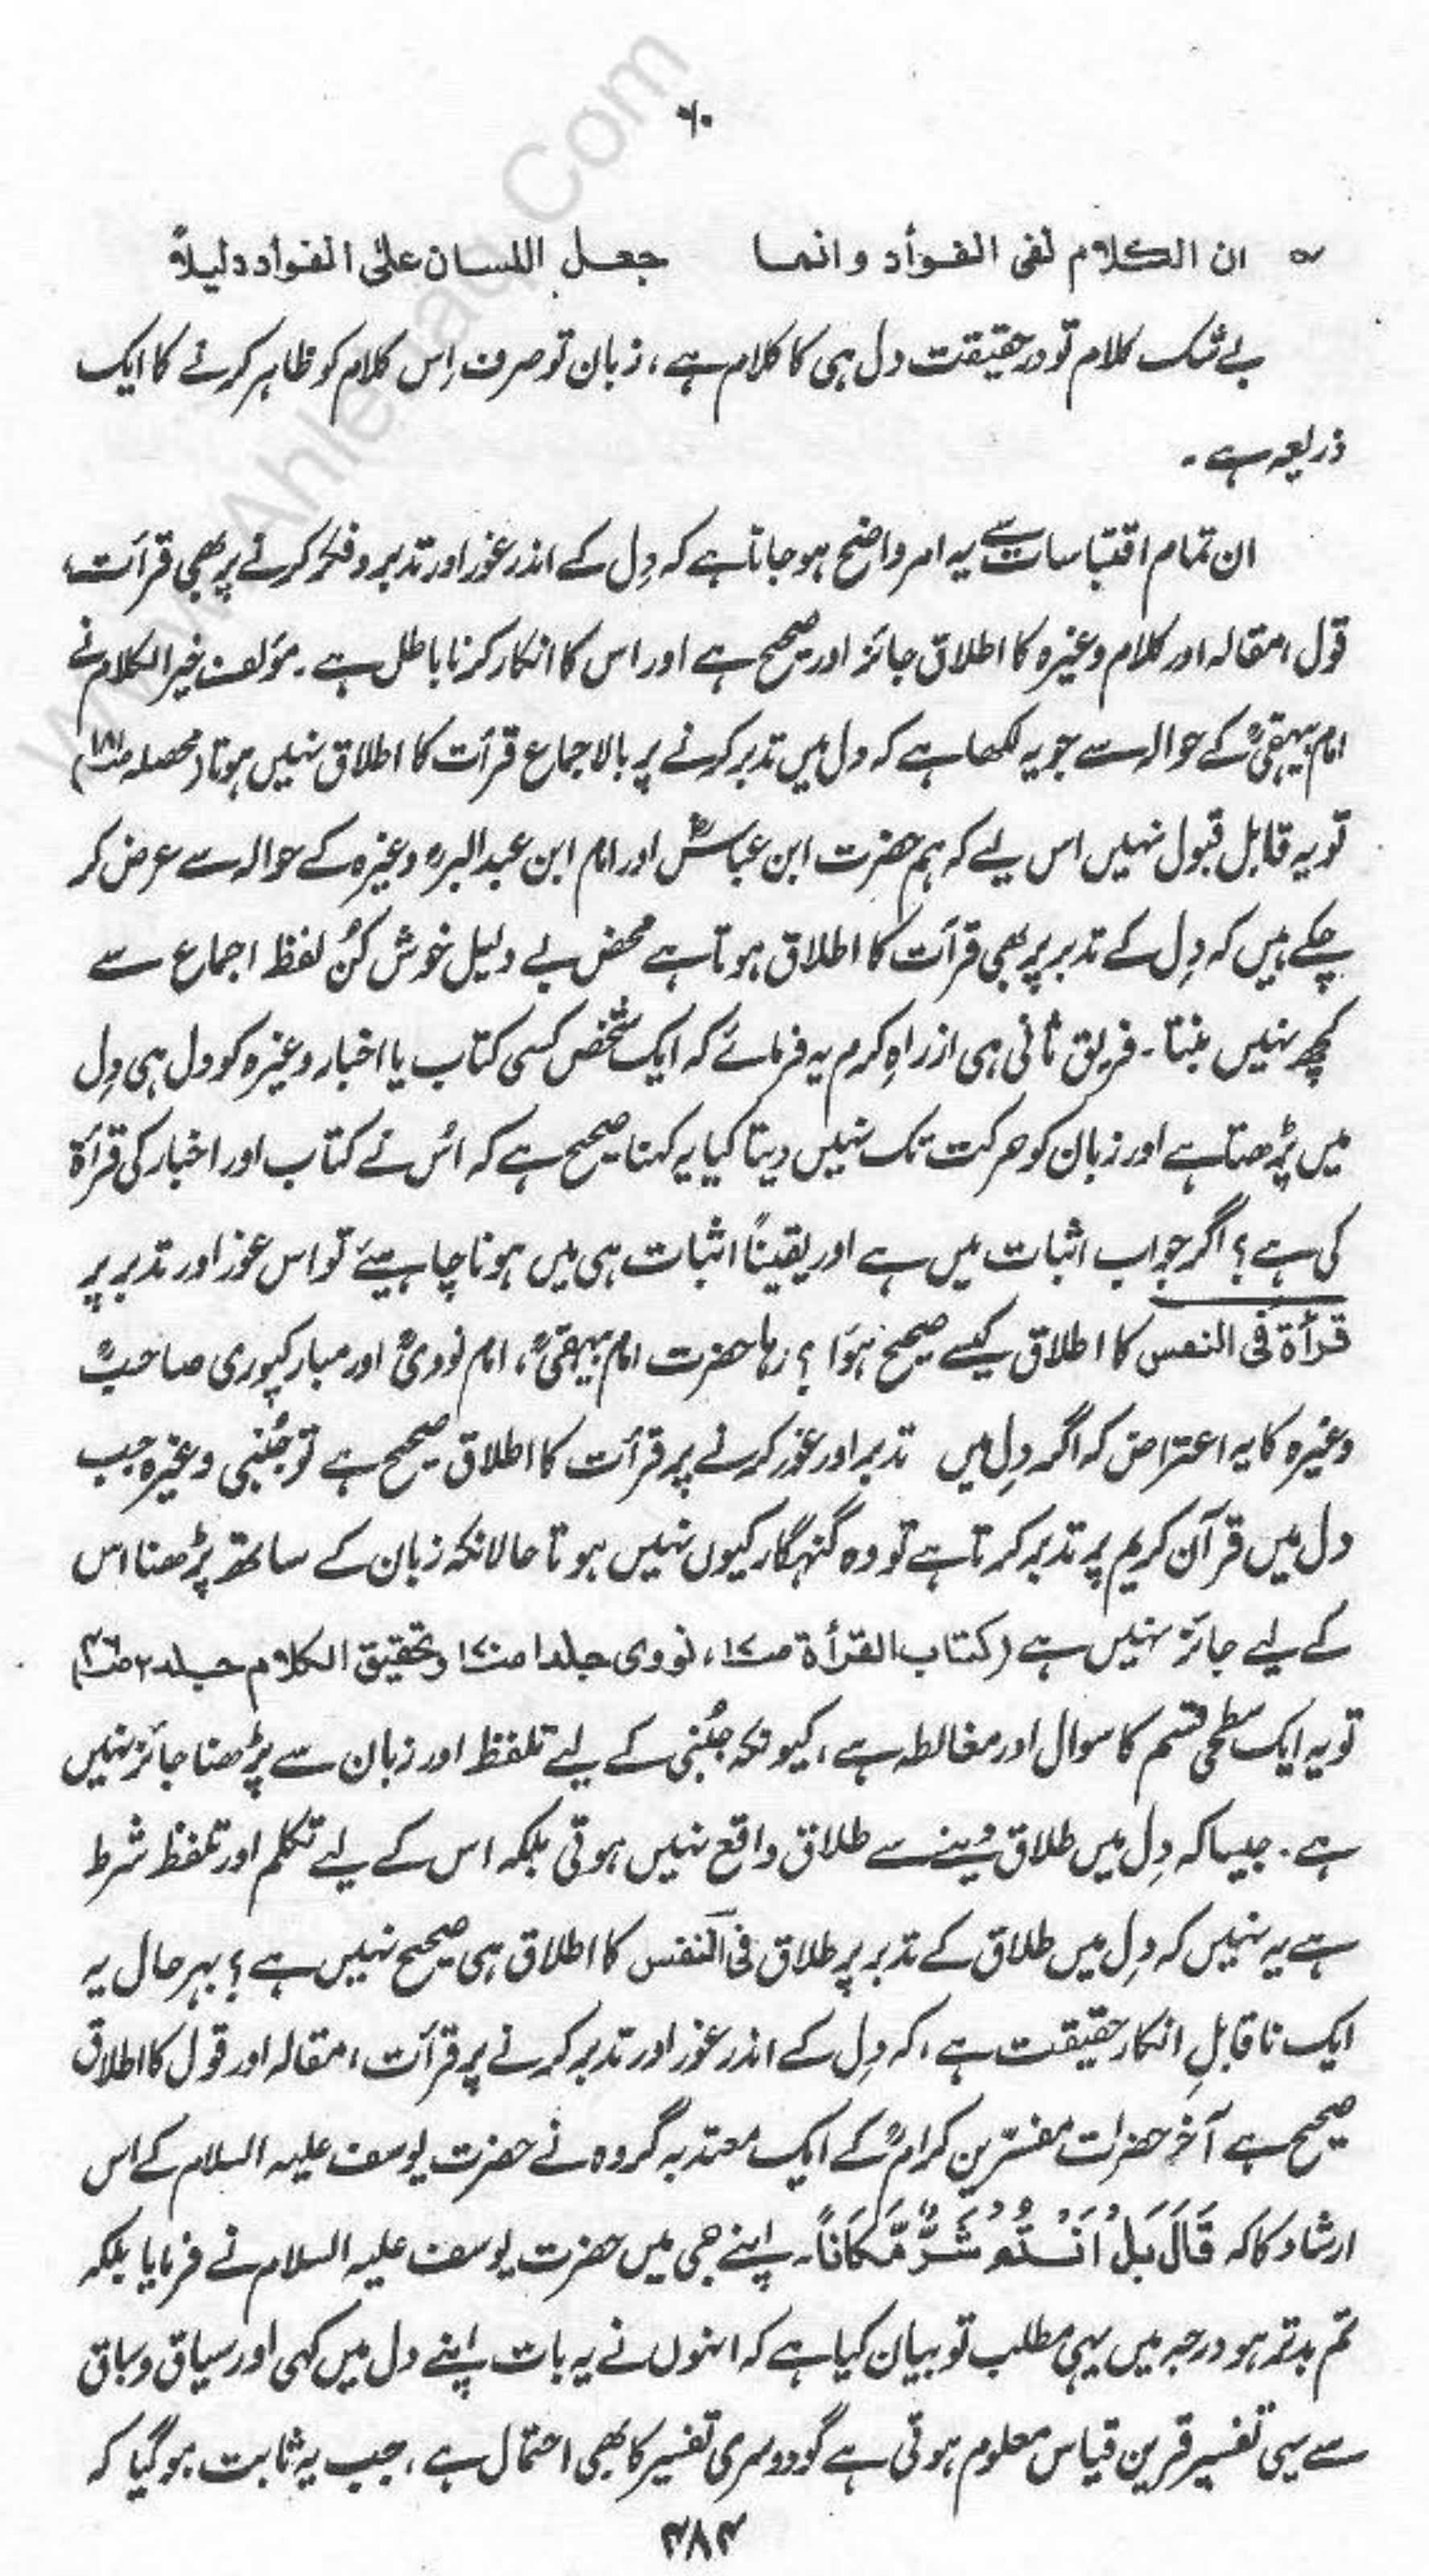 ۶۰
ان الکلام لفی الفؤاد وانما جعل اللسان علی الفواد دلیلاً
بے شک کلام تو درحقیقت دل ہی کا کلام ہے، زبان تو صرف اِس کلام کو ظاہر کرنے کا ایک
ذریعہ ہے۔
ان تمام اقتباسات سے یہ امر واضح ہو جاتا ہے کہ دِل کے اندر غور اور تدبر و فکر کرنے پر بھی قرأت،
قول، مقالہ اور کلام وغیرہ کا اطلاق جائز اور صحیح ہے اور اس کا انکار کرنا باطل ہے۔ مؤلف خیر الکلام نے
امام بیہقیؒ کے حوالہ سے جو یہ لکھا ہے کہ دل میں تدبر کرنے پر بالاجماع قرأت کا اطلاق نہیں ہوتا (محصلہ
تو یہ قابل قبول نہیں اس لیے کہ ہم حضرت ابن عباسؓ اور امام ابن عبدالبرؒ وغیرہ کے حوالہ سے عرض کر
چکے ہیں کہ دِل کے تدبر پر بھی قرأت کا اطلاق ہوتا ہے محض بے دلیل خوش کُن لفظ اجماع سے
کچھ نہیں بنتا۔ فریق ثانی ہی ازراہِ کرم یہ فرمائے کہ ایک شخص کسی کتاب یا اخبار وغیرہ کو دل ہی دِل
میں پڑھتا ہے اور زبان کو حرکت تک نہیں دیتا کیا یہ کہنا صحیح ہے کہ اُس نے کتاب اور اخبار کی قرأۃ
کی ہے؟ اگر جواب اثبات میں ہے اور یقیناً اثبات ہی میں ہونا چاہیئے تو اس غور اور تدبر پر
قرأۃ فی النفس کا اطلاق کیسے صحیح ہوَا؟ رہا حضرت امام بیہقیؒ، امام نوویؒ اور مبارکپوری صاحبؒ
وغیرہ کا یہ اعتراض کہ اگر دِل میں تدبر اور غور کرنے پر قرأت کا اطلاق صحیح ہے تو جُنبی وغیرہ جب
دل میں قرآن کریم پر تدبر کرتا ہے تو وہ گنہگار کیوں نہیں ہوتا حالانکہ زبان کے ساتھ پڑھنا اس
کے لیے جائز نہیں ہے (کتاب القرأۃ ص۱۷، نووی جلد۱ ص۱۷۰ و تحقیق الکلام جلد۲
تو یہ ایک سطحی قسم کا سوال اور مغالطہ ہے، کیونکہ جُنبی کے لیے تلفظ اور زبان سے پڑھنا جائز نہیں
ہے۔ جیسا کہ دِل میں طلاق دینے سے طلاق واقع نہیں ہوتی بلکہ اس کے لیے تکلم اور تلفظ شرط
ہے یہ نہیں کہ دِل میں طلاق کے تدبر پر طلاق فی النفس کا اطلاق ہی صحیح نہیں ہے؟ بہرحال یہ
ایک ناقابلِ انکار حقیقت ہے، کہ دِل کے اندر غور اور تدبر کرنے پر قرأت، مقالہ اور قول کا اطلاق
صحیح ہے آخر حضرات مفسّرین کرامؒ کے ایک معتدبہ گروہ نے حضرت یوسف علیہ السلام کے اس
ارشاد کا کہ قَالَ بَلْ اَنْتُمْ شَرٌّ مَّکَانًا۔ اپنے جی میں حضرت یوسف علیہ السلام نے فرمایا بلکہ
تم بدتر ہو درجہ میں یہی مطلب تو بیان کیا ہے کہ انہوں نے یہ بات اپنے دل میں کہی اور سیاق و سباق
سے یہی تفسیر قرین قیاس معلوم ہوتی ہے گو دوسری تفسیر کا بھی احتمال ہے، جب یہ ثابت ہو گیا کہ
۴۸۴